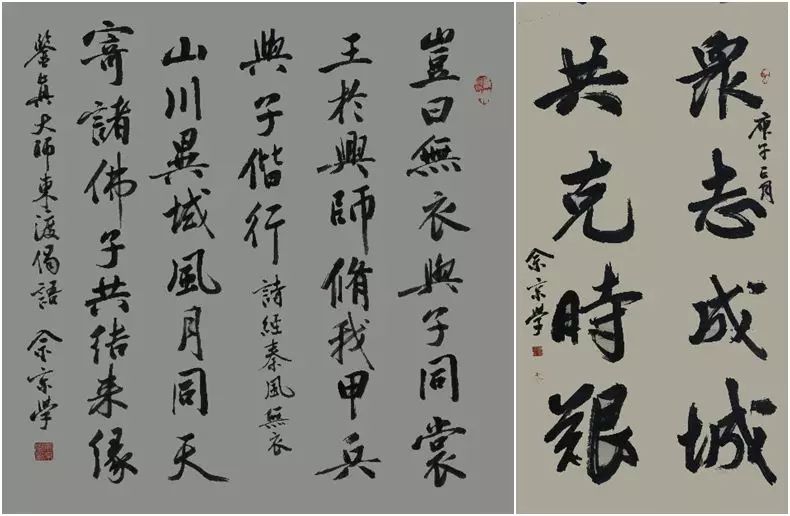 豈曰無衣與子同裳
王於興師脩我甲兵
與子偕行 詩經秦風無衣
山川異域風月同天
寄諸佛子共结来緣
鑒真大師東渡偈語 佘京学
庚子正月
眾志成城
共克時艱
佘京学